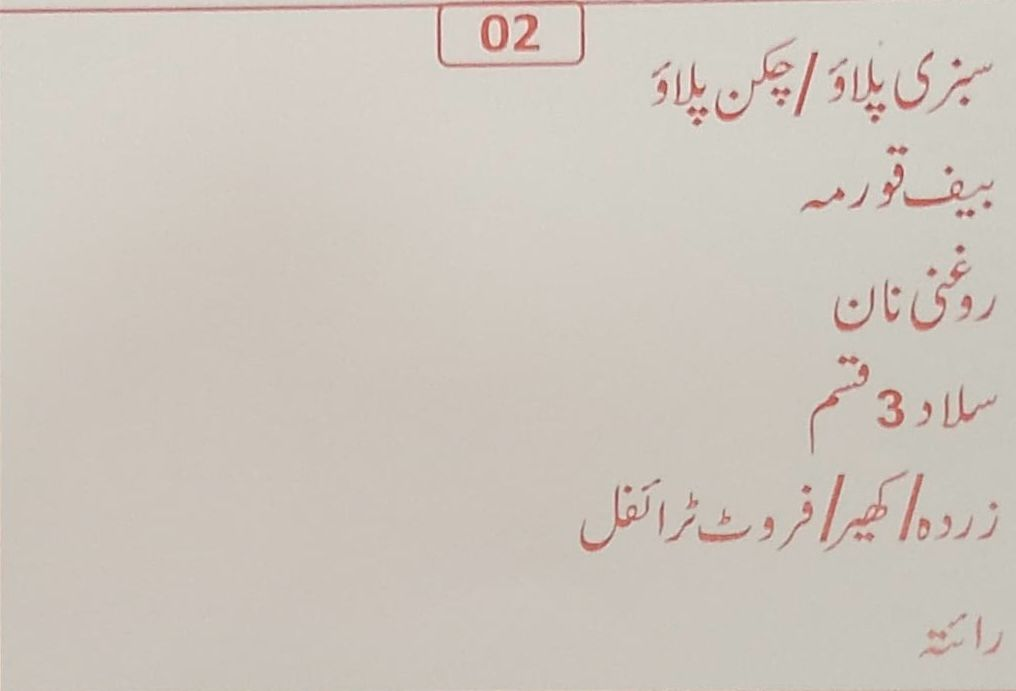 02
سبزی پلاؤ / چکن پلاؤ
بیف قورمہ
روغنی نان
سلاد 3 قسم
زردہ / کھیر / فروٹ ٹرائفل
رائتہ